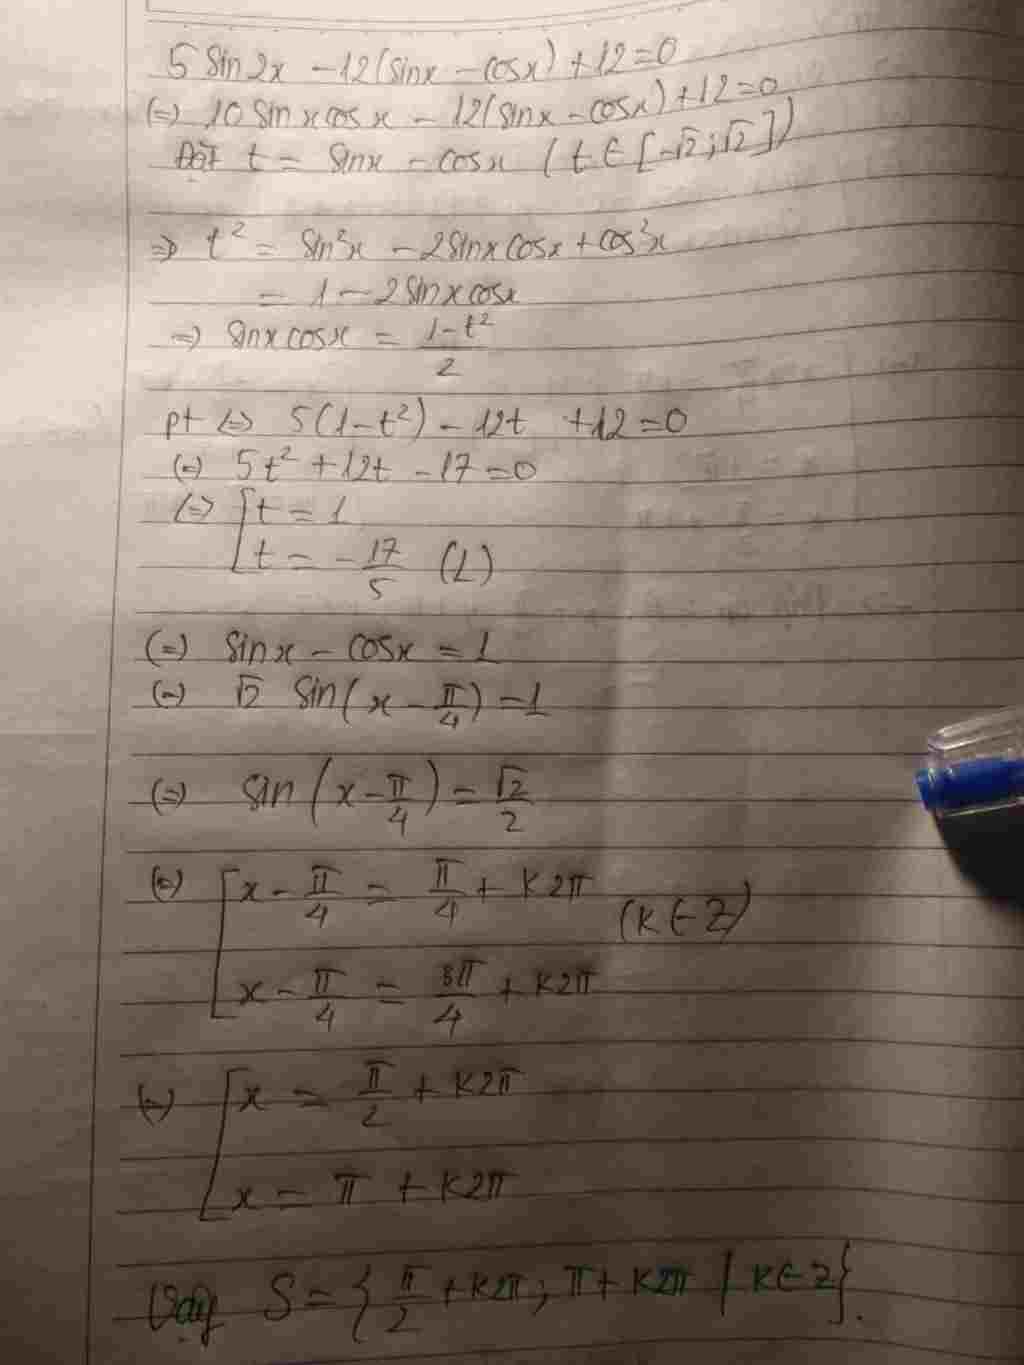 5 sin2x - 12(sinx - cosx) + 12 = 0
(=) 10 sinxcosx - 12(sinx - cosx) + 12 = 0
Đặt t = sinx - cosx (t ∈ [-√2; √2])
=> t² = sin²x - 2sinxcosx + cos²x
= 1 - 2sinxcosx
=> sinxcosx = (1-t²)/2
pt <=> 5(1-t²) - 12t + 12 = 0
(=) 5t² + 12t - 17 = 0
<=> [ t = 1
t = -17/5 (L)
(=) sinx - cosx = 1
(=) √2 sin(x - π/4) = 1
(=) sin(x - π/4) = √2/2
(=) [ x - π/4 = π/4 + k2π
(k ∈ Z)
x - π/4 = 3π/4 + k2π
(=) [ x = π/2 + k2π
x = π + k2π
Vậy S = {π/2 + k2π; π + k2π | k ∈ Z}.